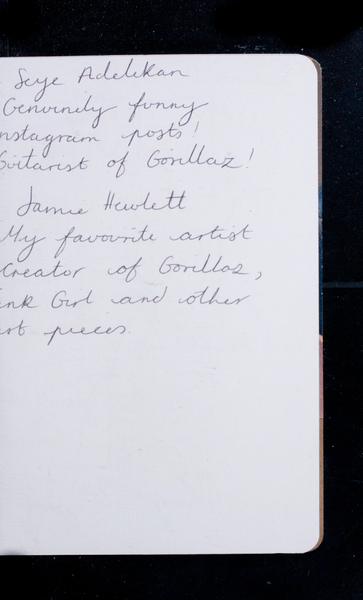 Seye Adelekan
Genuinely funny
Instagram posts!
Guitarist of Gorillaz!
Jamie Hewlett
My favourite artist
Creator of Gorillaz,
Girl and other
pieces